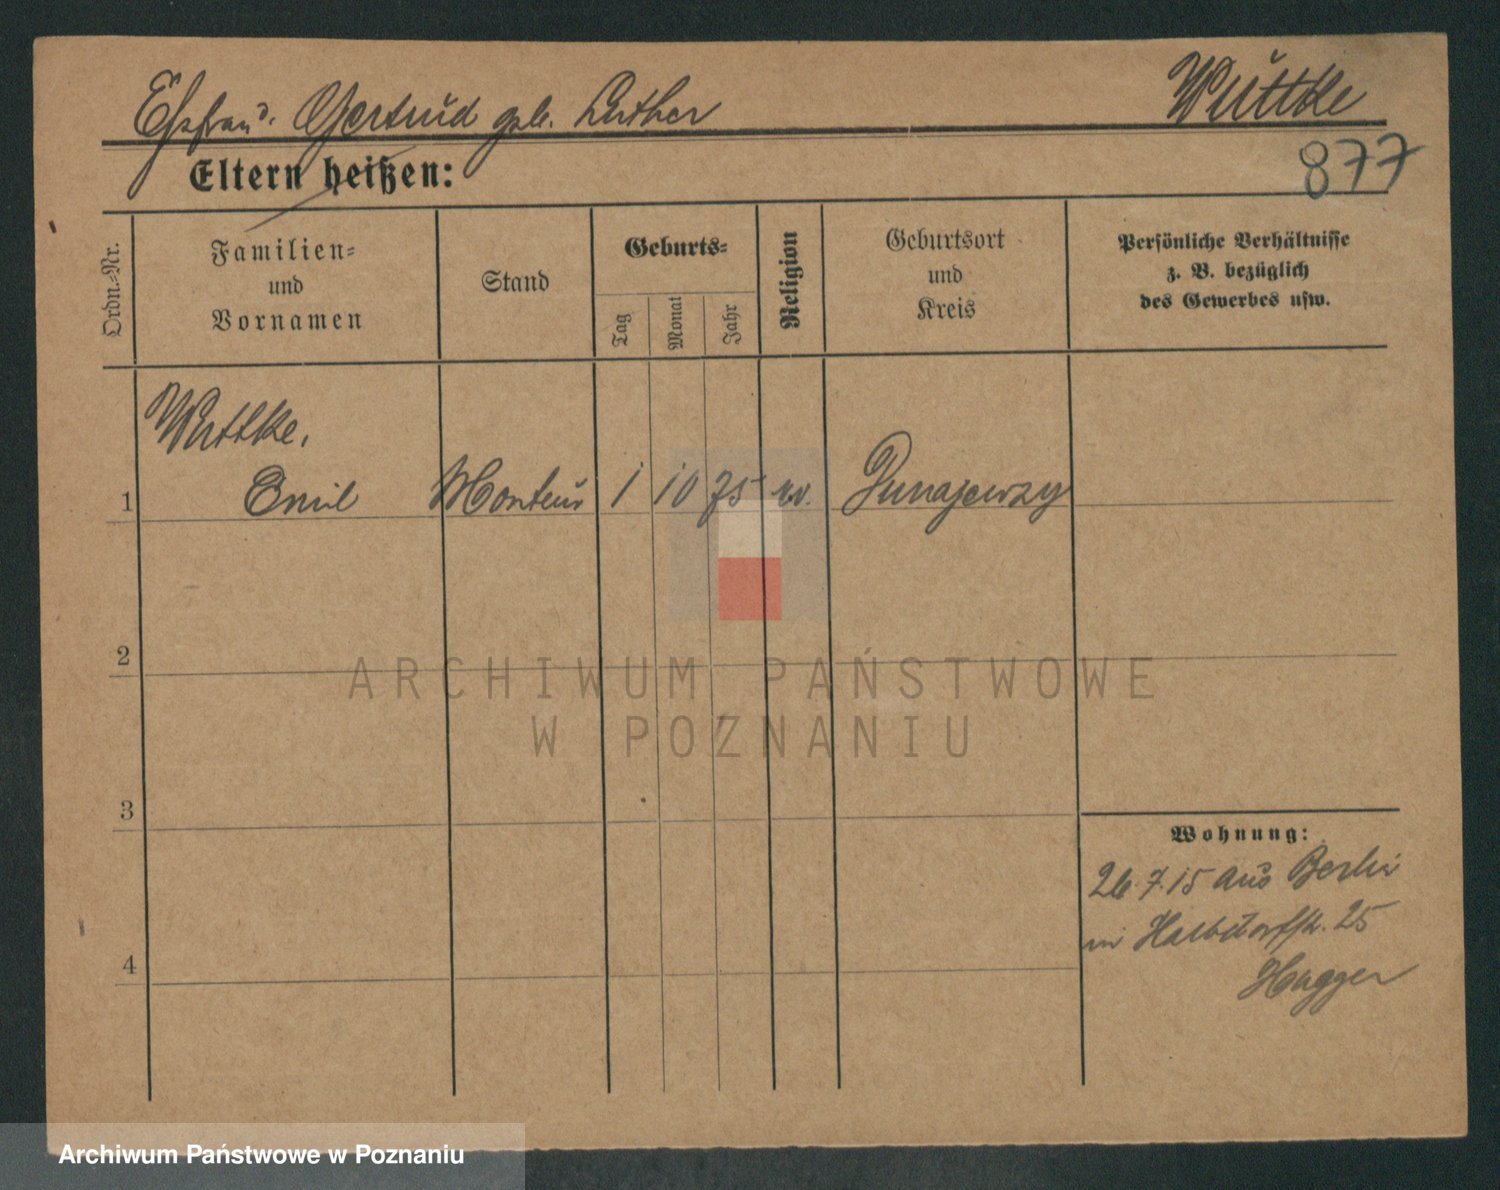 Wuttke
Ehefrau: Gertrud geb. Luther
877
Eltern heißen:
Ordn.-Nr.
Familien-
und
Vornamen
Stand
Geburts-
Tag
Monat
Jahr
Religion
Geburtsort
und
Kreis
Persönliche Verhältnisse
z. B. bezüglich
des Gewerbes usw.
Wuttke,
1 Emil Monteur 1 10 75 ev.
2
3
4
Wohnung:
26.7.15 aus Berlin
in 25
Hagger
ARCHIWUM PAŃSTWOWE
W POZNANIU
Archiwum Państwowe w Poznaniu